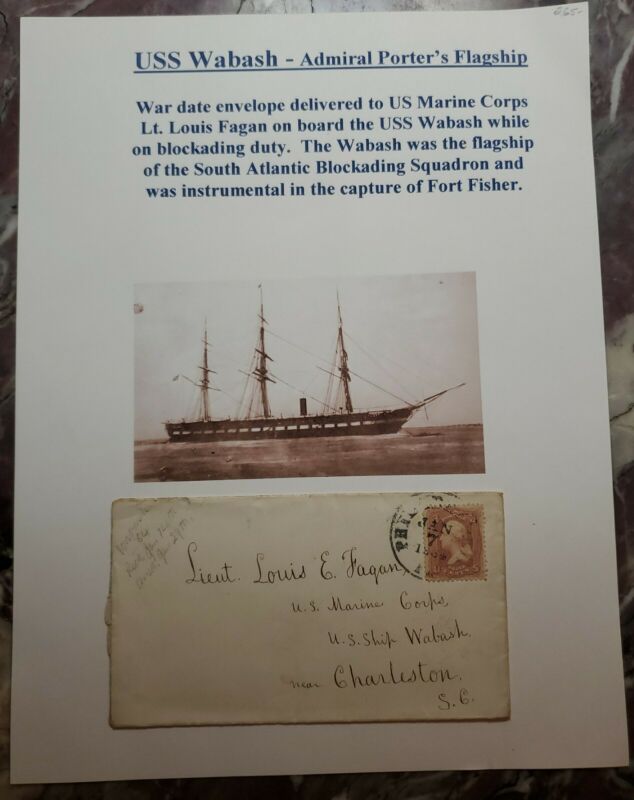 265-
USS Wabash - Admiral Porter's Flagship
War date envelope delivered to US Marine Corps
Lt. Louis Fagan on board the USS Wabash while
on blockading duty. The Wabash was the flagship
of the South Atlantic Blockading Squadron and
was instrumental in the capture of Fort Fisher.
Lieut. Louis E. Fagan,
U.S. Marine Corps,
U.S. Ship Wabash,
near Charleston,
S.C.